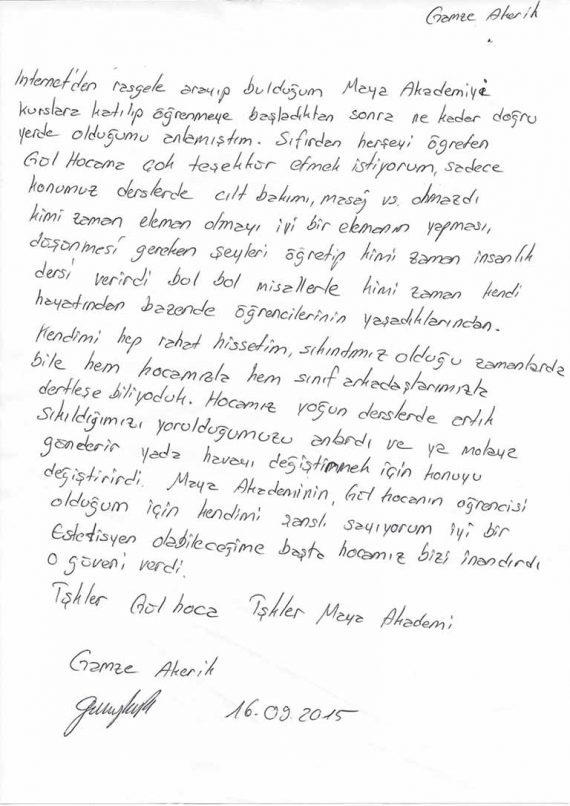 Gamze Akerik
Internet'den rasgele arayıp bulduğum Maya Akademiyi
kurslara katılıp öğrenmeye başladıktan sonra ne kadar doğru
yerde olduğumu anlamıştım. Sıfırdan herşeyi öğreten
Gül Hocama çok teşekkür etmek istiyorum, sadece
konumuz derslerde cilt bakımı, masaj vs. olmazdı
kimi zaman eleman olmayı iyi bir elemanın yapması,
düşünmesi gereken şeyleri öğretip kimi zaman insanlık
dersi verirdi bol bol misallerle kimi zaman kendi
hayatından bazende öğrencilerinin yaşadıklarından.
Kendimi hep rahat hissetim, sıkındımız olduğu zamanlarda
bile hem hocamızla hem sınıf arkadaşlarımızla
dertleşe biliyoduk. Hocamız yoğun derslerde artık
sıkıldığımızı yorulduğumuzu anlardı ve ya molaya
gönderir yada havayı değiştirmek için konuyu
değiştirirdi. Maya Akademinin, Gül hocanın öğrencisi
olduğum için kendimi şanslı sayıyorum iyi bir
Estetisyen olabileceğime başta hocamız bizi inandırdı
O güveni verdi.
Tşkler Gül hoca Tşkler Maya Akademi
Gamze Akerik
16.09.2015